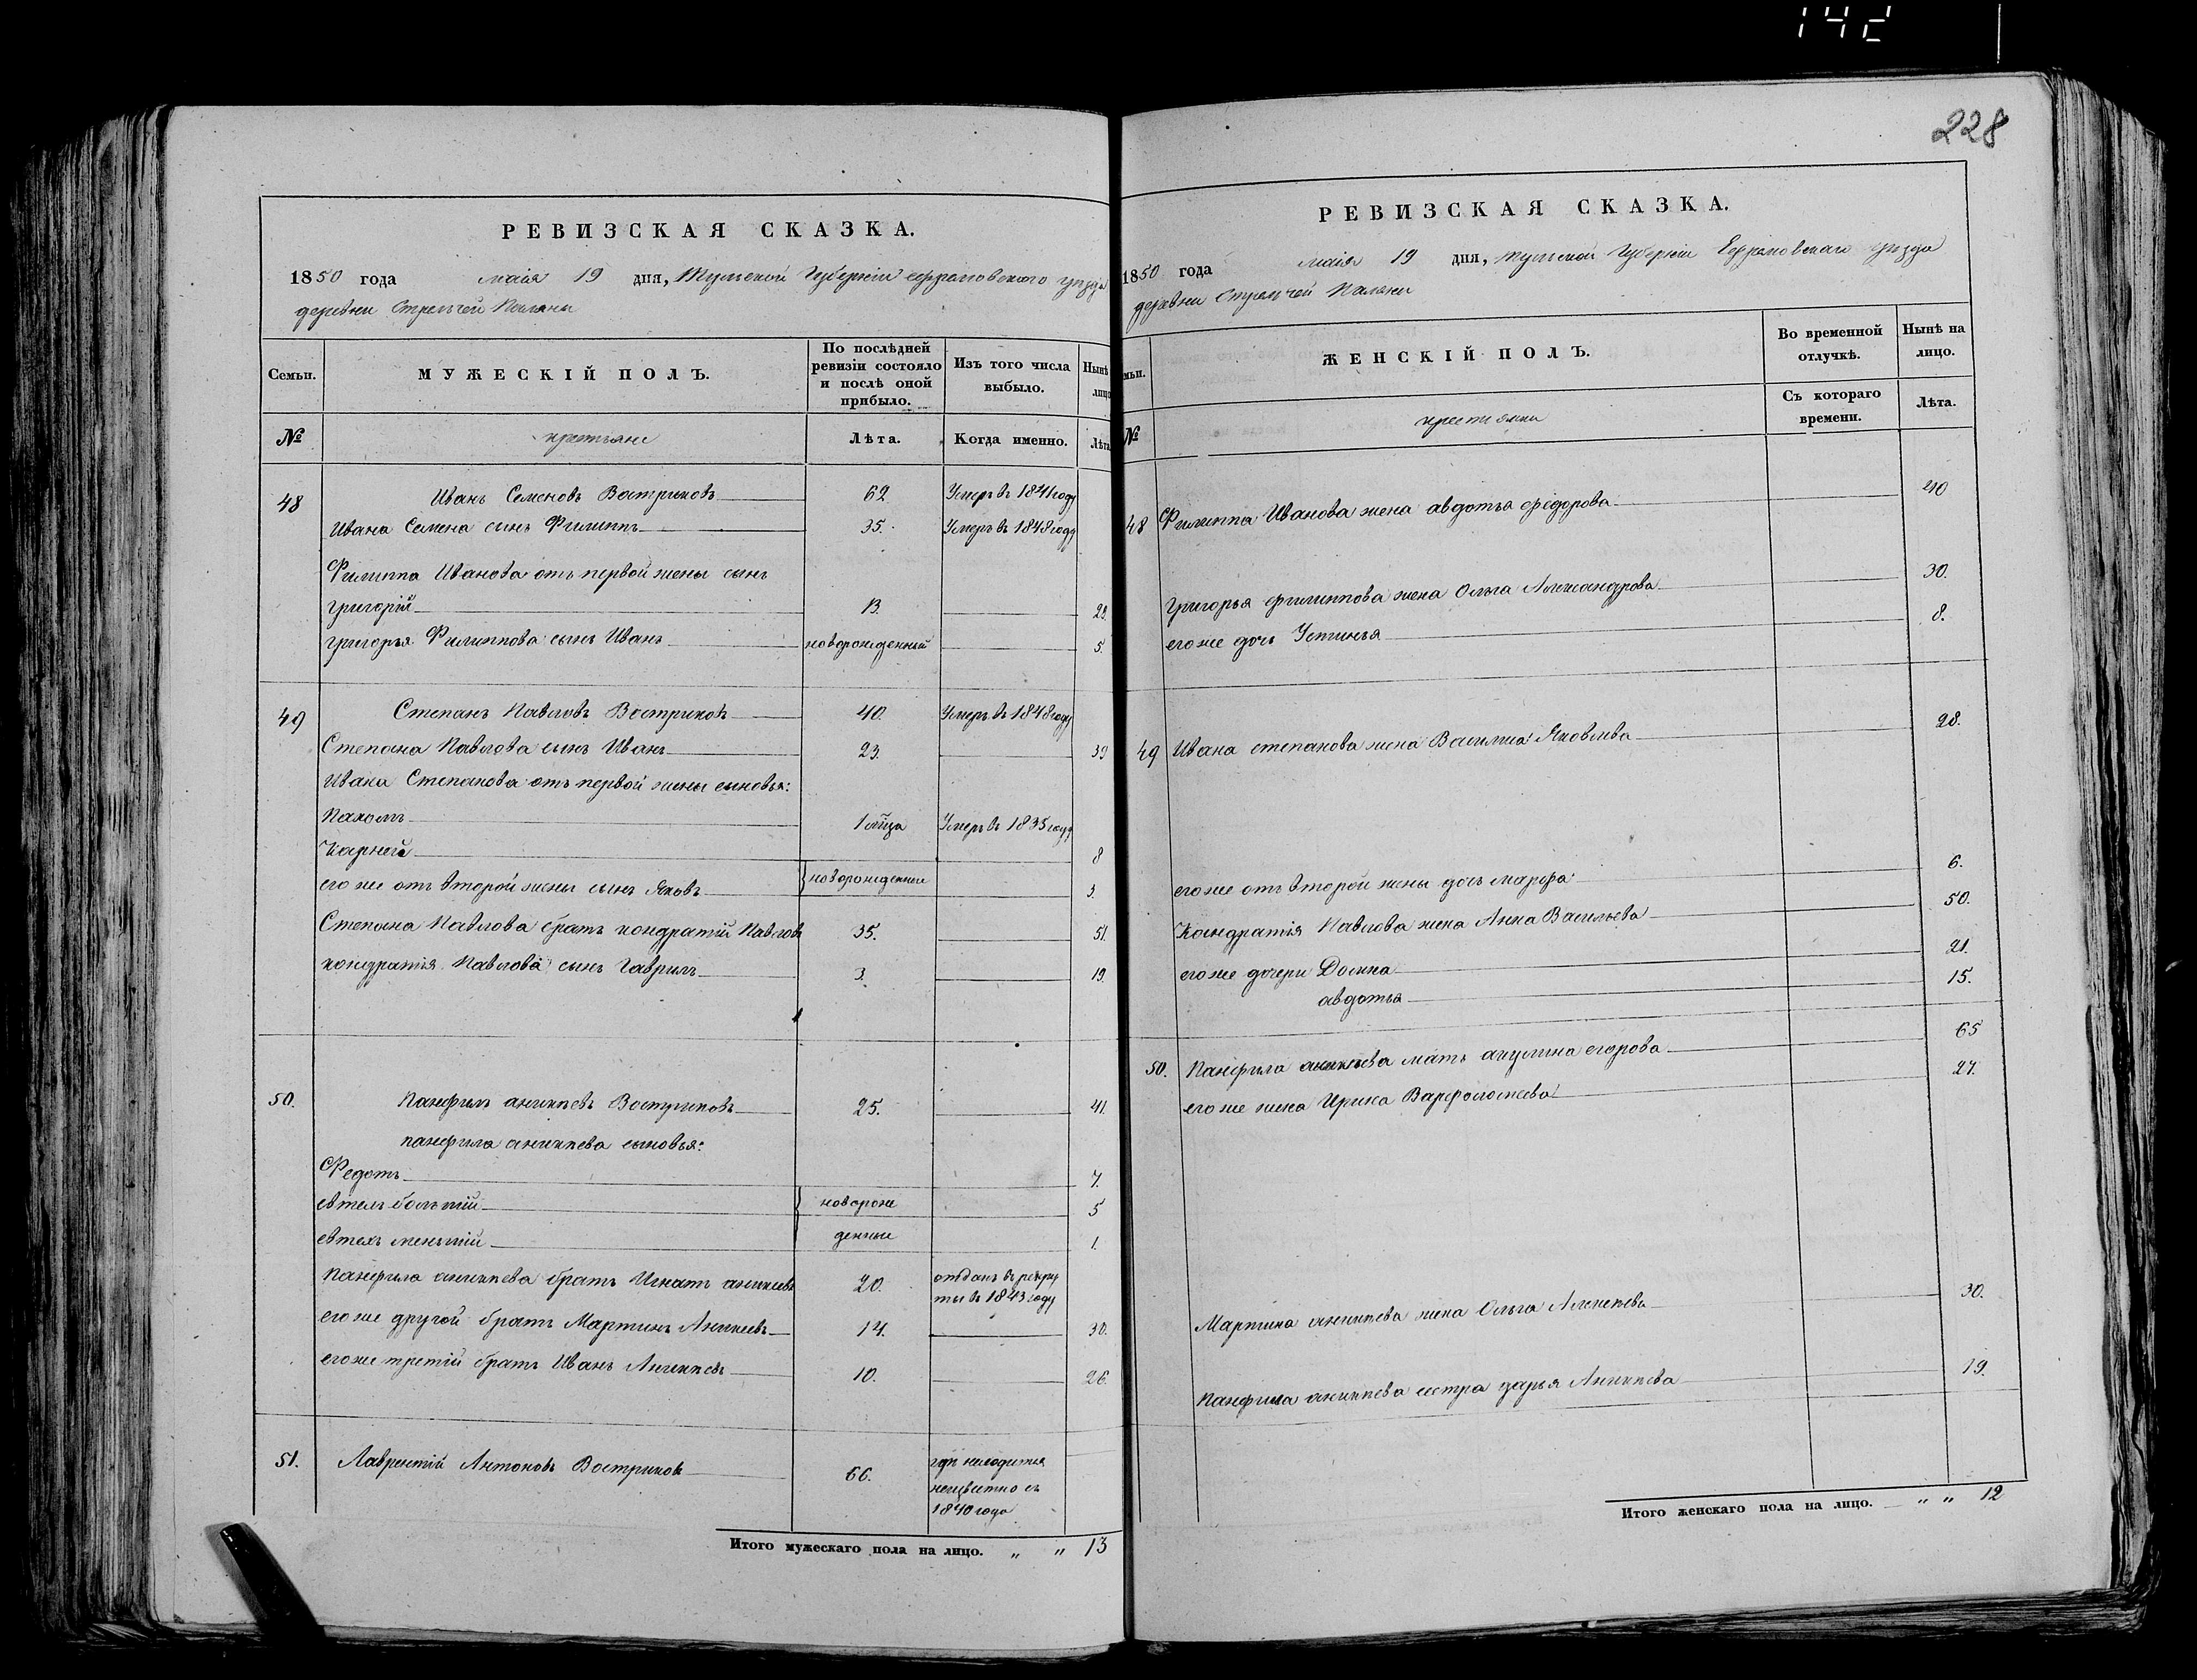 142
228
РЕВИЗСКАЯ СКАЗКА.
1850 года маія 19 дня, Тульской Губерніи ефремовского уезда
деревни Стрельчей Поляны
Семьи. МУЖЕСКІЙ ПОЛЪ. По послѣдней ревизіи состояло и послѣ оной прибыло. Изъ того числа выбыло. Нынѣ лицо
№ крестьяне Лѣта. Когда именно. Лѣта
48 Иванъ Семеновъ Востриковъ 62 Умеръ въ 1841 году
Ивана Семена сынъ Филиппъ 35. Умеръ въ 1848 году
Филиппа Иванова отъ первой жены сынъ
григорій 13. 29.
григорья Филиппова сынъ Иванъ новорожденный 5.
49 Степанъ Павловъ Востриковъ 40. Умеръ въ 1848 году
Степана Павлова сынъ Иванъ 23. 39
Ивана Степанова отъ первой жены сыновья:
Пахомъ 1 мца Умеръ въ 1835 году
Карней 8
его же отъ второй жены сынъ Яковъ новорожденные 3.
Степана Павлова братъ кондратій Павловъ 35. 51.
кондратія Павлова сынъ Гаврилъ 3. 19.
50. Панфилъ аникеевъ Востриковъ 25. 41.
панфила аникеева сыновья:
Федотъ 7.
евтехъ большій новорож 5
евтехъ меньшій денные 1.
Панфила аникеева братъ Игнатъ аникеевъ 20. отданъ въ рекру
ты въ 1843 году
его же другой братъ Мартинъ Аникеевъ 14. 30.
его же третій братъ Иванъ Аникеевъ 10. 26.
51. Лаврентій Антоновъ Востриковъ 66. где находится
неизвестно съ
1840 года
Итого мужескаго пола на лицо. „ „ 13
РЕВИЗСКАЯ СКАЗКА.
1850 года маія 19 дня, Тульской Губерніи Ефремовскаго уезда
деревни Стрельчей Поляны
мьи. ЖЕНСКІЙ ПОЛЪ. Во временной отлучкѣ. Нынѣ на лицо.
№ крестьянки Съ котораго времени. Лѣта.
48 Филиппа Иванова жена авдотья федорова 40
григорья филиппова жена Ольга Александрова 30.
его же дочь Устинья 8.
49 Ивана степанова жена Василиса Яковлева 28.
его же отъ второй жены дочь марфа 6.
Кандратія Павлова жена Анна Васильева 50.
его же дочери Домна 21.
авдотья 15.
50. Панфила аникеева мать акулина егорова 65
его же жена Ирина Варфоломеева 27.
Мартина аникеева жена Ольга Алексеева 30.
Панфила аникеева сестра дарья Аникеева 19.
Итого женскаго пола на лицо. „ „ 12